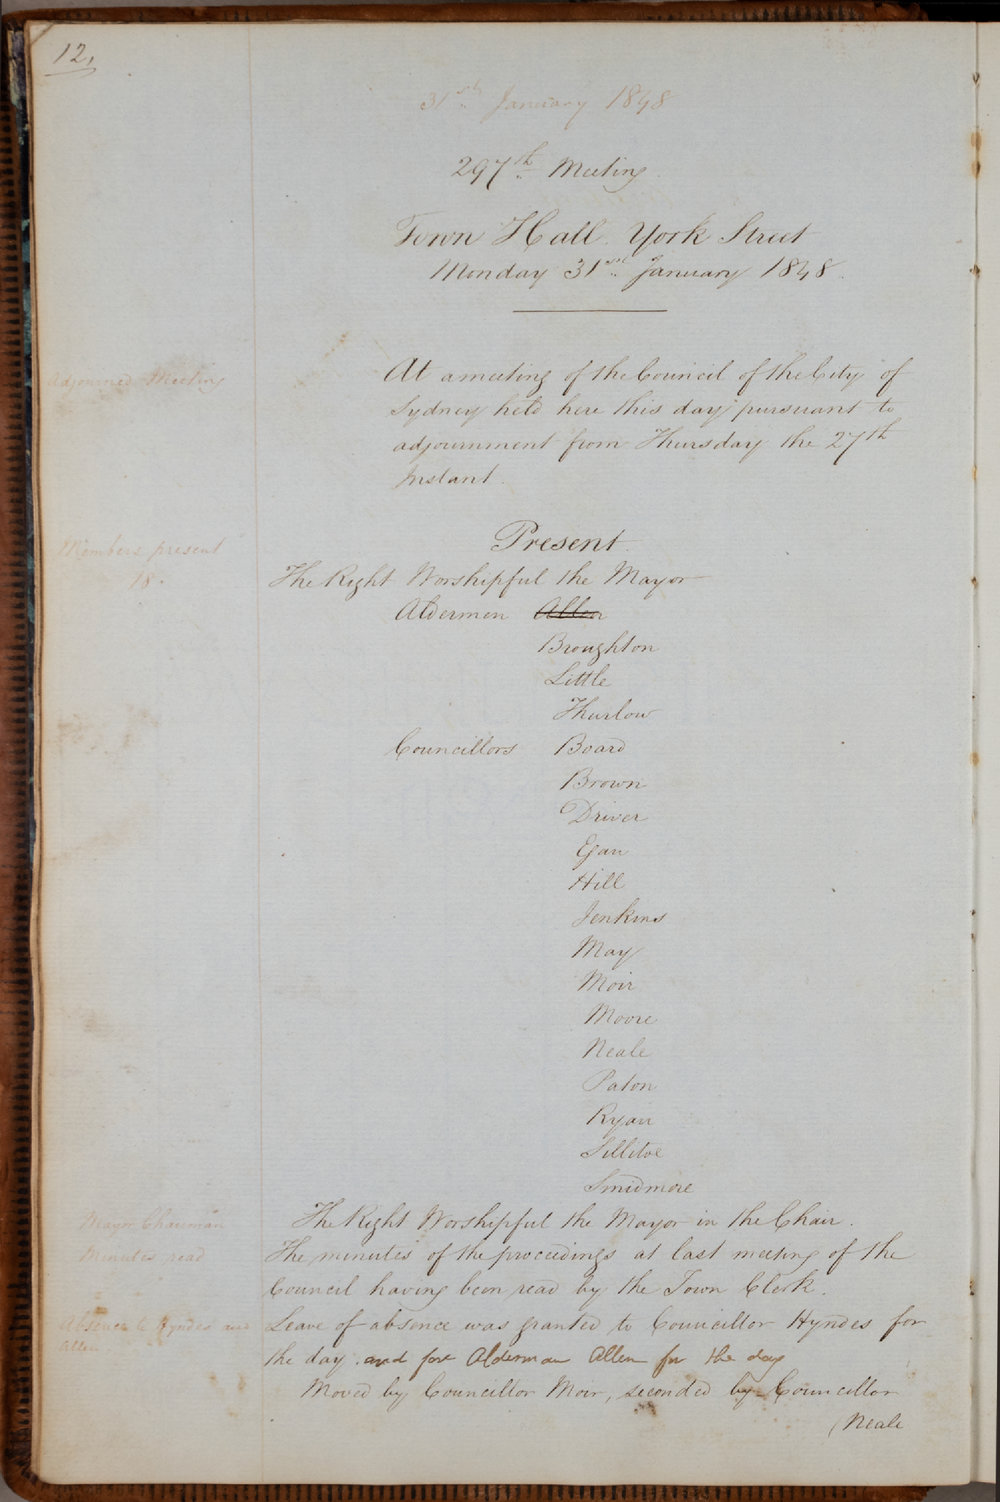 12,
31st January 1848
297th Meeting.
Town Hall. York Street
Monday 31st January 1848.
Adjourned Meeting
At a meeting of the Council of the City of
Sydney held here this day pursuant to
adjournment from Thursday the 27th
Instant.
Present.
Members present
18.
The Right Worshipful the Mayor
Aldermen Allen
Broughton
Little
Thurlow
Councillors Board
Brown
Driver
Egan
Hill
Jenkins
May
Moir
Moore
Neale
Paton
Ryan
Sillitoe
Smidmore
Mayor Chairman
The Right Worshipful the Mayor in the Chair.
Minutes read
The minutes of the proceedings at last meeting of the
Council having been read by the Town Clerk.
Absence C Hyndes and
Allen.
Leave of absence was granted to Councillor Hyndes for
the day. and for Alderman Allen for the day
Moved by Councillor Moir, seconded by Councillor
(Neale